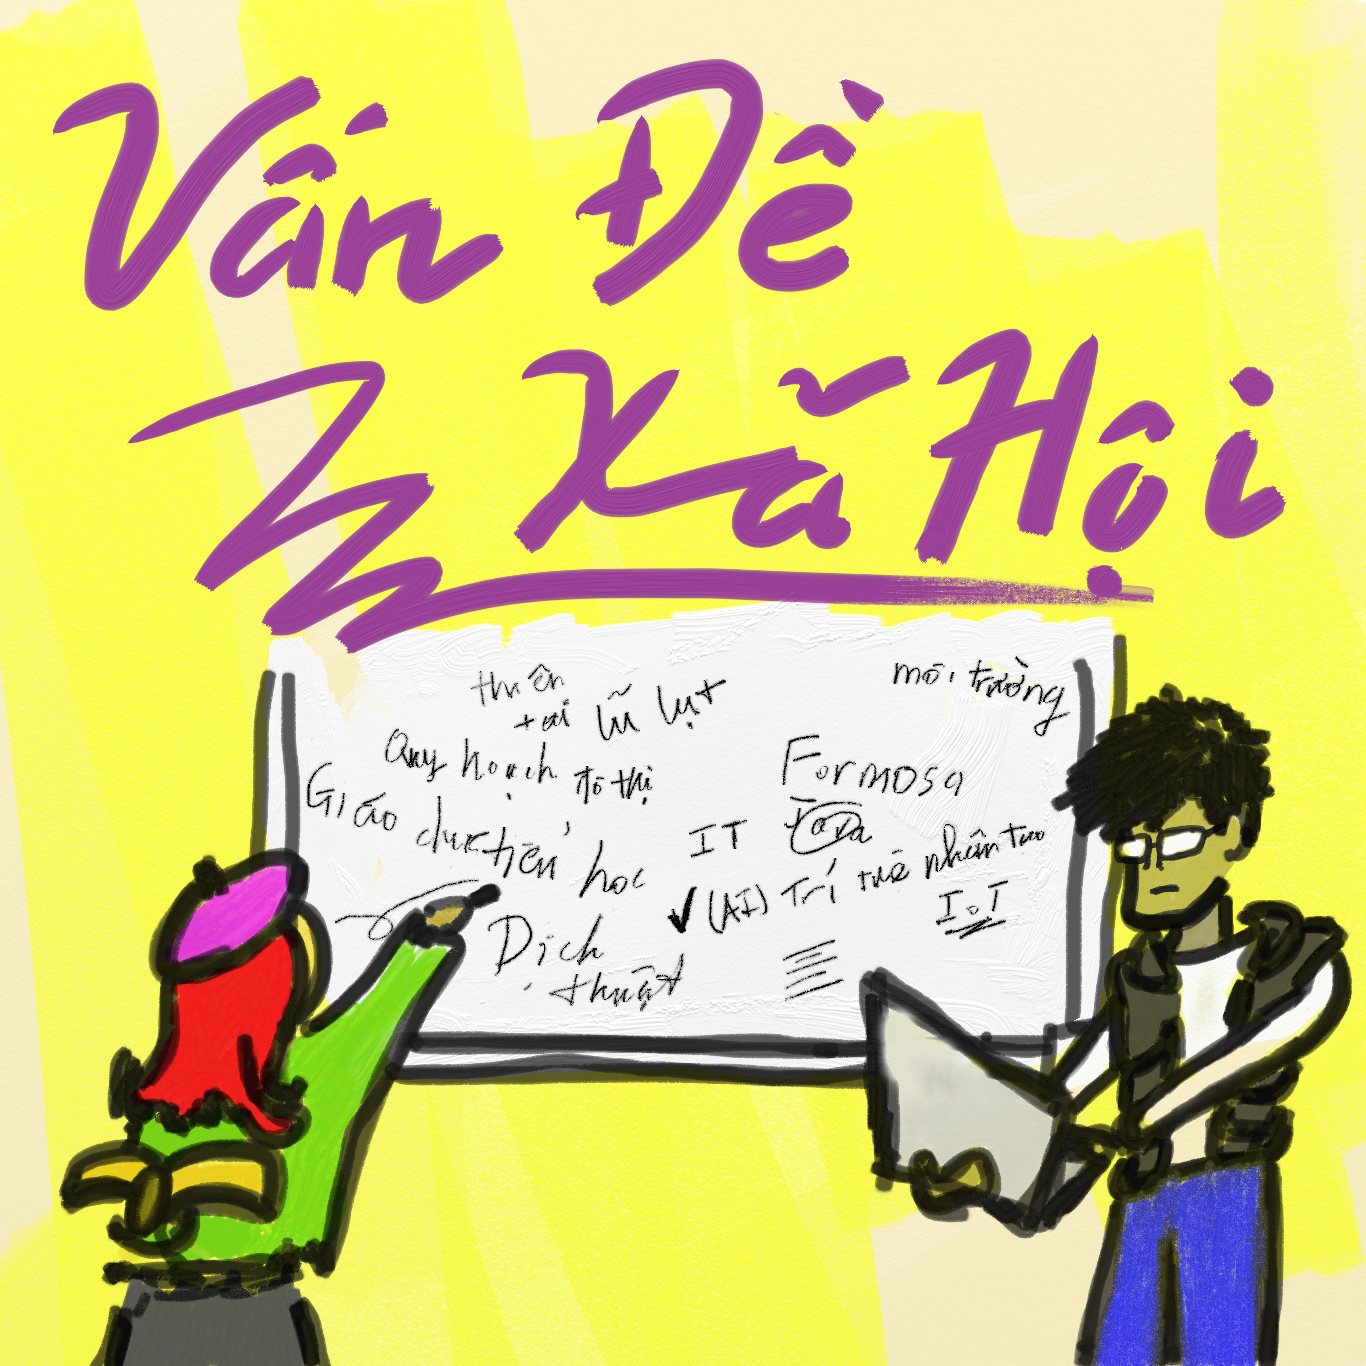 Vấn Đề
Xã Hội
thiên
tai
lũ lụt
môi trường
Quy hoạch đô thị
Giáo dục tiểu học
Formosa
IT
✓(AI) Trí tuệ nhân tạo
IoT
Dịch
thuật